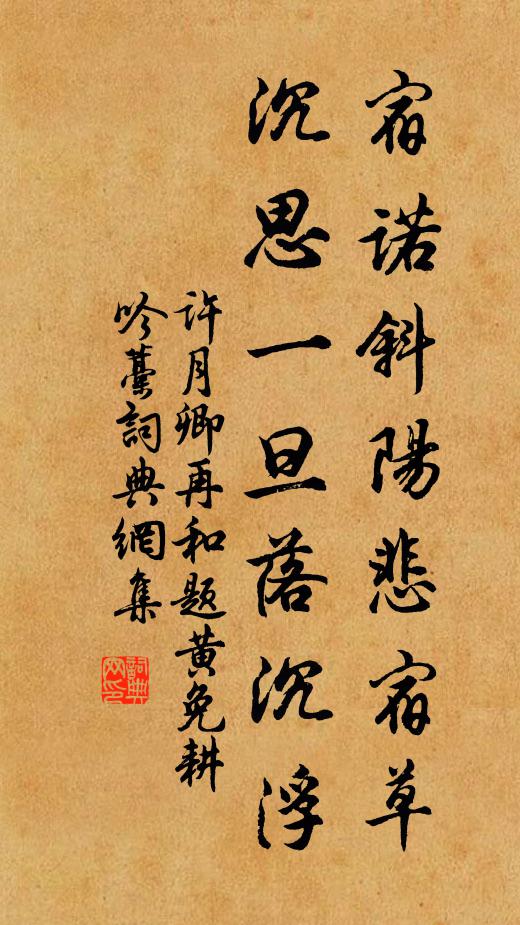 宿诺斜陽悲宿草
沉思一旦落沉浮
許月卿再和题黄免耕
吟藁詞典網集
詞典网印